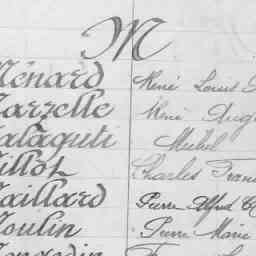 M
Ménard René Louis
Marzelle René
Malaguti Michel
Millot Charles
Maillard Pierre Alfred
Moulin Pierre Marie